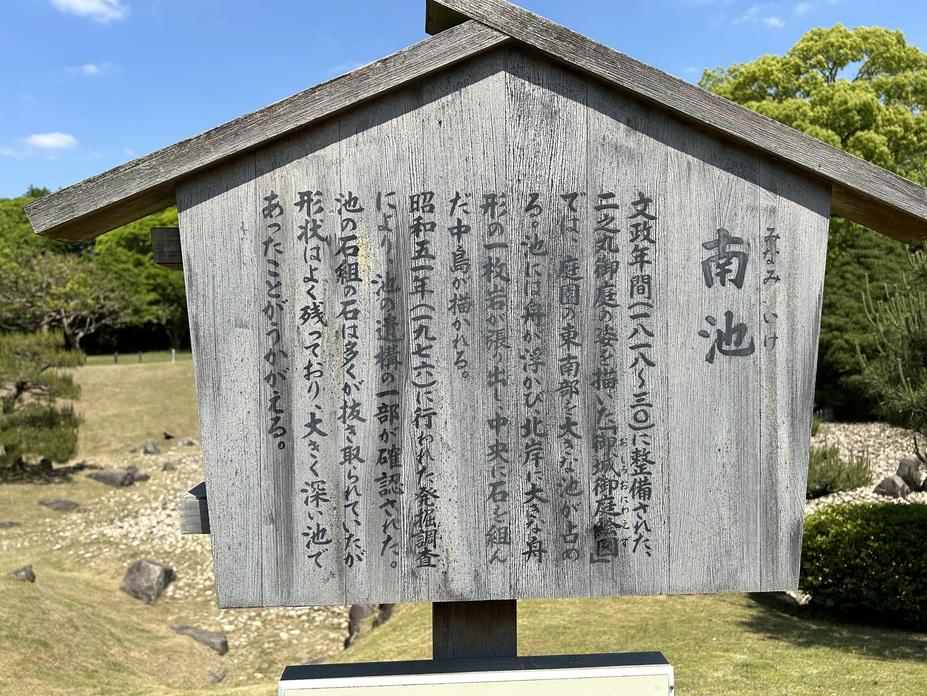 みなみいけ
南池
文政年間(一八一八〜三〇)に整備された、
二之丸御庭の姿を描いた「御城御庭絵図」
おしろおにわえず
では、庭園の東南部を大きな池が占め
る。池には舟が浮かび、北岸に大きな舟
形の一枚岩が張り出し、中央に石を組ん
だ中島が描かれる。
昭和五一年(一九七六)に行われた発掘調査
により、池の遺構の一部が確認された。
池の石組の石は多くが抜き取られていたが
形状はよく残っており、大きく深い池で
あったことがうかがえる。